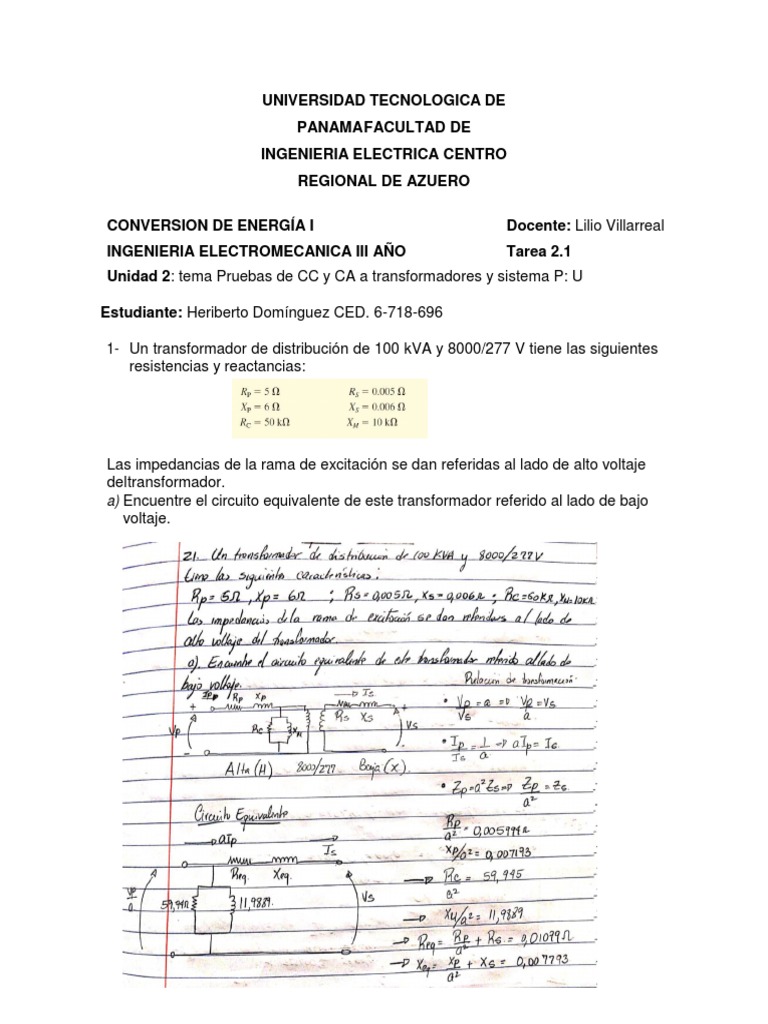 UNIVERSIDAD TECNOLOGICA DE
PANAMAFACULTAD DE
INGENIERIA ELECTRICA CENTRO
REGIONAL DE AZUERO
CONVERSION DE ENERGÍA I Docente: Lilio Villarreal
INGENIERIA ELECTROMECANICA III AÑO Tarea 2.1
Unidad 2: tema Pruebas de CC y CA a transformadores y sistema P: U
Estudiante: Heriberto Domínguez CED. 6-718-696
1- Un transformador de distribución de 100 kVA y 8000/277 V tiene las siguientes
resistencias y reactancias:
RP = 5 Ω RS = 0.005 Ω
XP = 6 Ω XS = 0.006 Ω
RC = 50 kΩ XM = 10 kΩ
Las impedancias de la rama de excitación se dan referidas al lado de alto voltaje
deltransformador.
a) Encuentre el circuito equivalente de este transformador referido al lado de bajo
voltaje.
21. Un transformador de distribución de 100 KVA y 8000/277V
tiene las siguientes características:
Rp = 5Ω, Xp = 6Ω ; Rs = 0,005Ω, Xs = 0,006Ω ; Rc = 50KΩ, XM = 10KΩ
Las impedancias de la rama de excitación se dan referidas al lado de
alto voltaje del transformador.
a). Encuentre el circuito equivalente de este transformador referido al lado de
bajo voltaje.
Relación de transformación
Ip Rp Xp Is
+ +
Vp Rc XM Rs Xs Vs
- -
Alta (H) 8000/277 Baja (X)
• Vp/Vs = a => Vp/a = Vs
• Ip/Is = 1/a => aIp = Is
• Zp = a²Zs => Zp/a² = Zs
Circuito Equivalente
aIp Is
Req. Xeq.
Vp/a 59,94Ω 11,9889. Vs
Rp/a² = 0,005994Ω
Xp/a² = 0,007193
Rc/a² = 59,945
XM/a² = 11,9889
Req = Rp/a² + Rs = 0,01099Ω
Xeq = Xp/a² + Xs = 0,007793